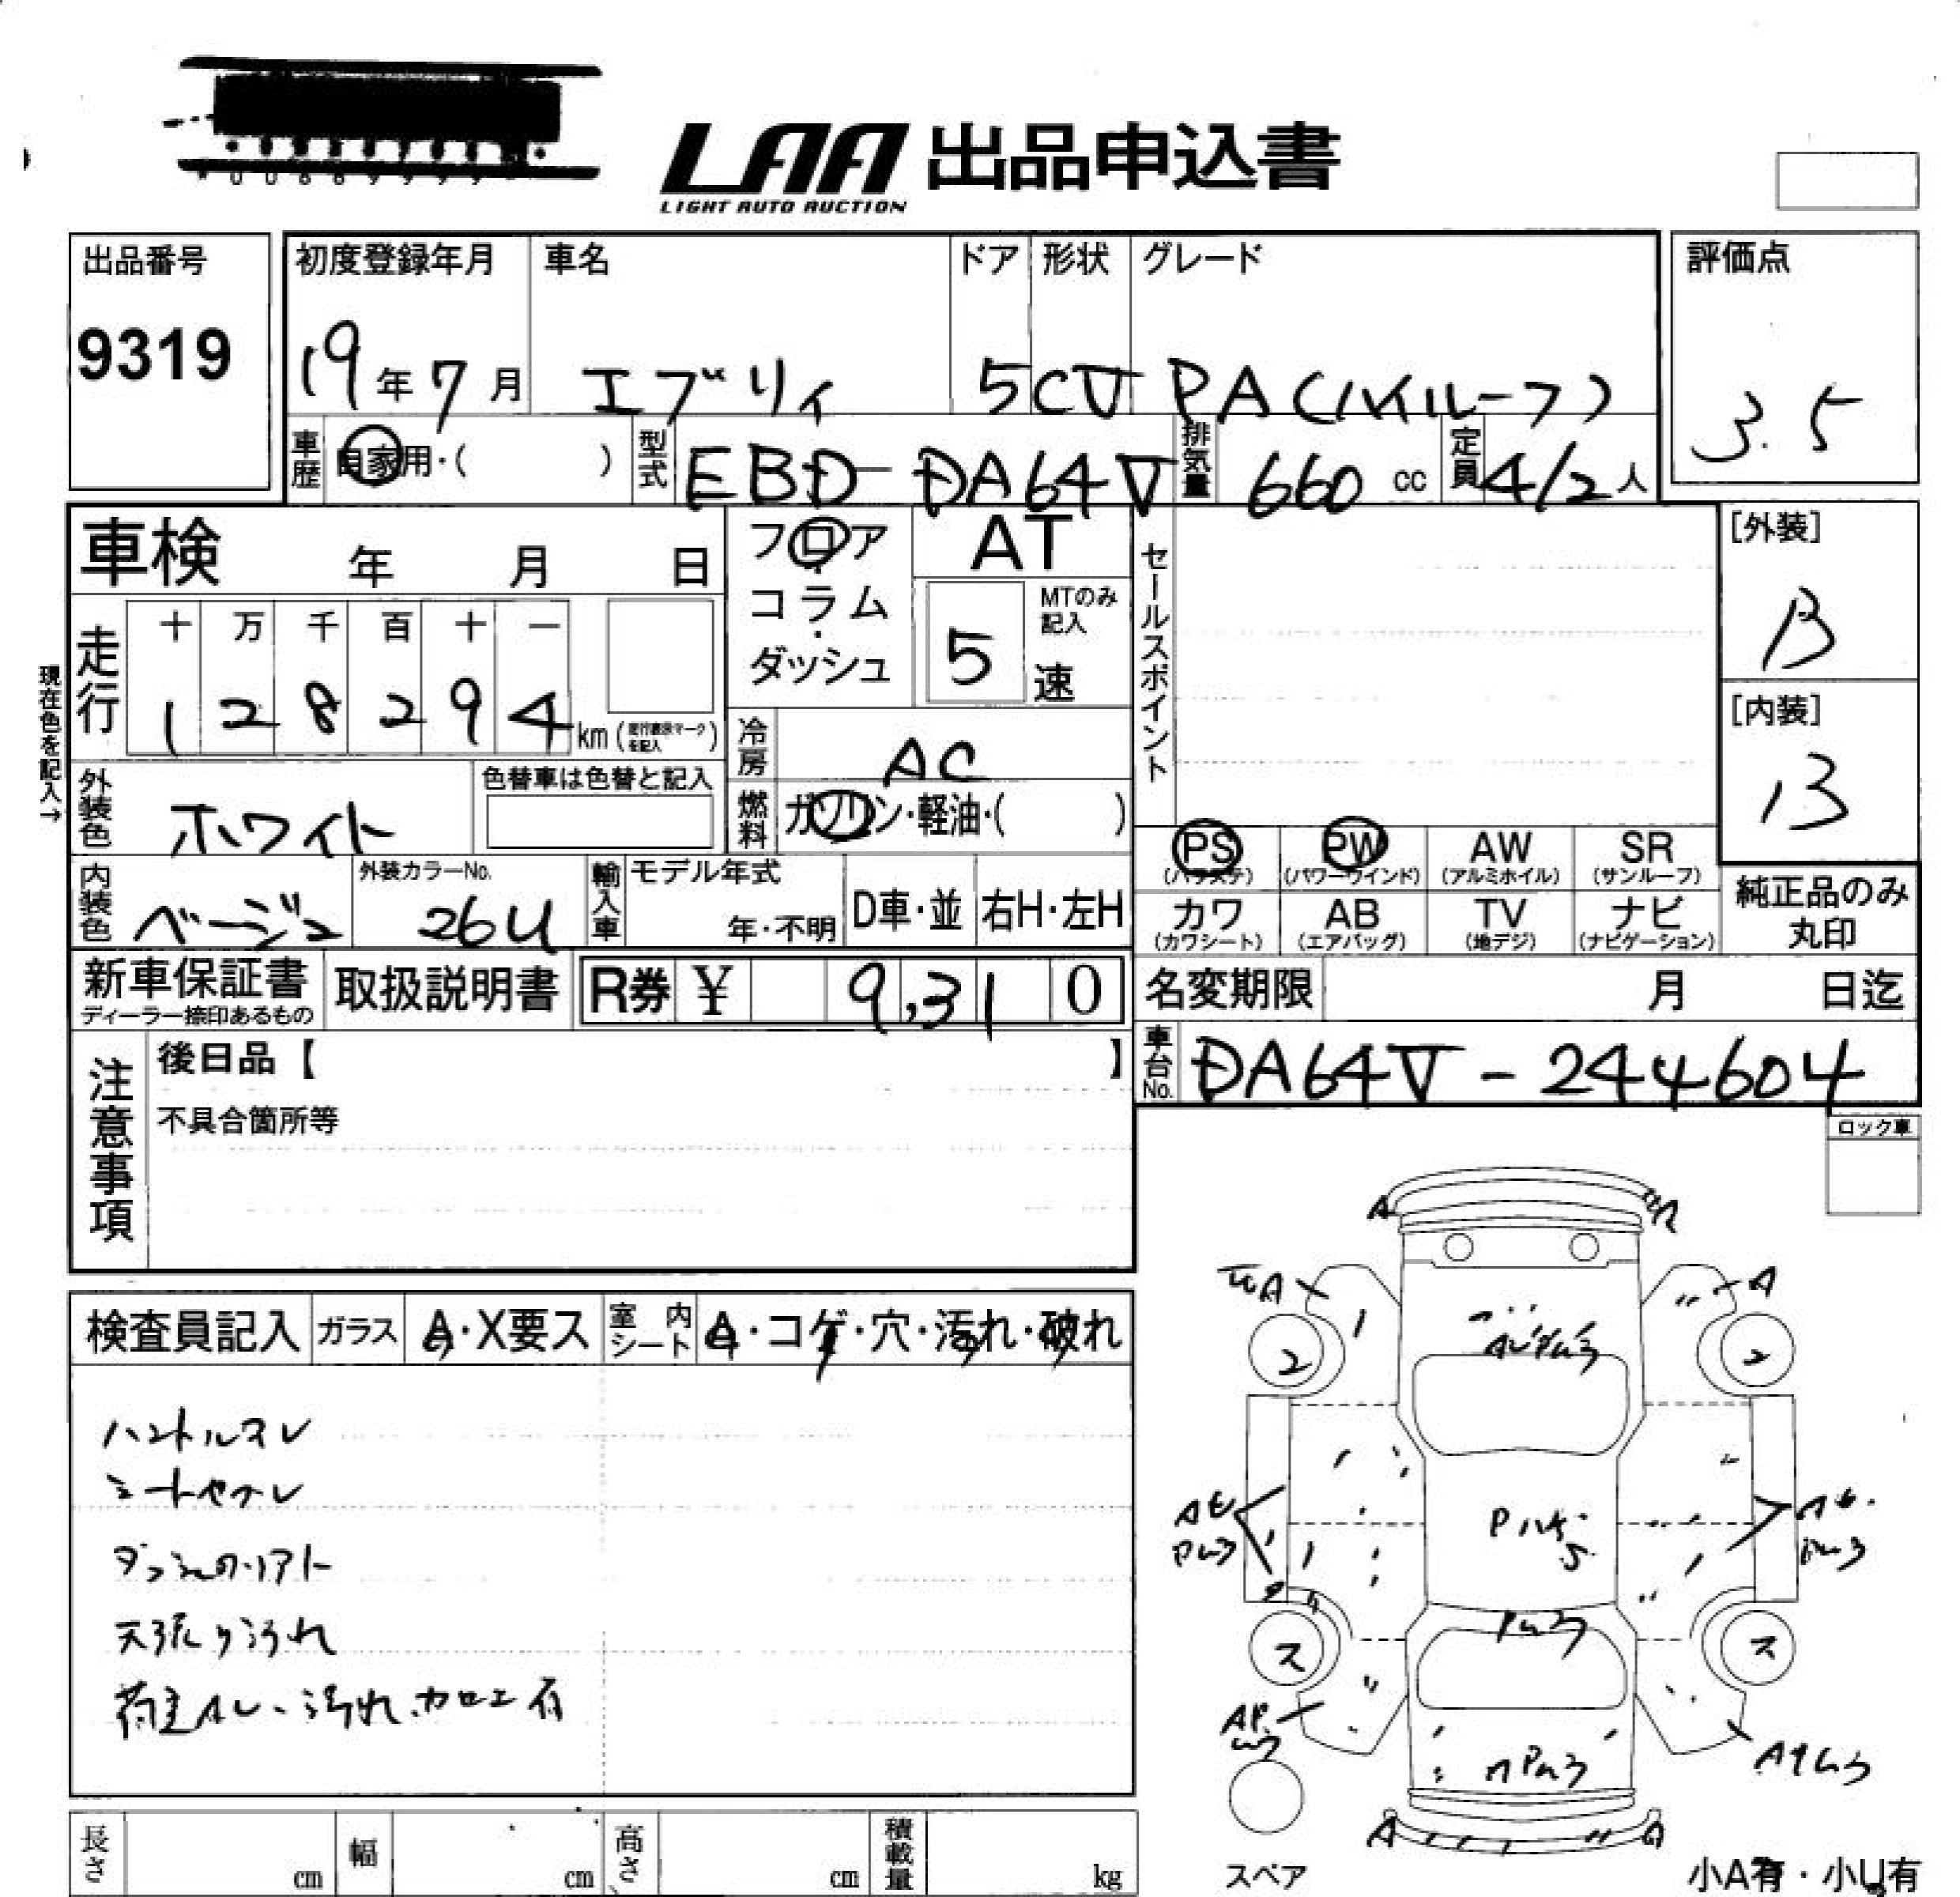 LAA 出品申込書
LIGHT AUTO AUCTION
出品番号
9319
初度登録年月
19年7月
車名
エブリィ
ドア 形状
5CV
グレード
PA(ハイルーフ)
評価点
3.5
車歴 自家用・( )
型式 EBD-DA64V
排気量 660 cc
定員 4/2人
車検 年 月 日
フロア・コラム・ダッシュ
AT
5
MTのみ記入
速
セールスポイント
[外装]
B
[内装]
B
現在色を記入→
走行
十 万 千 百 十 一
1 2 8 2 9 4 km
冷房 AC
燃料 ガソリン・軽油・( )
外装色 ホワイト
色替車は色替と記入
PS AB AW SR
(パワステ) (パワーウインド) (アルミホイル) (サンルーフ)
PW
カワ TV ナビ
(カワシート) (エアバッグ) (地デジ) (ナビゲーション)
純正品のみ
丸印
内装色 ベージュ
外装カラーNo.
26U
輸入車
モデル年式
年・不明
D車・並
右H・左H
新車保証書
ディーラー捺印あるもの
取扱説明書
R券 ¥ 9,310
名変期限 月 日迄
車台No. DA64V-244604
注意事項
後日品【 】
不具合箇所等
ロック車
検査員記入
ガラス A・X要ス
室内シート A・コゲ・穴・汚れ・破れ
ハンドルスレ
シートヤブレ
天張り汚れ
A A
A A
2 2
Pハゲ
Pムラ
ス ス
Pムラ
A A
スペア
小A有・小U有
長さ cm
幅 cm
高さ cm
積載量 kg